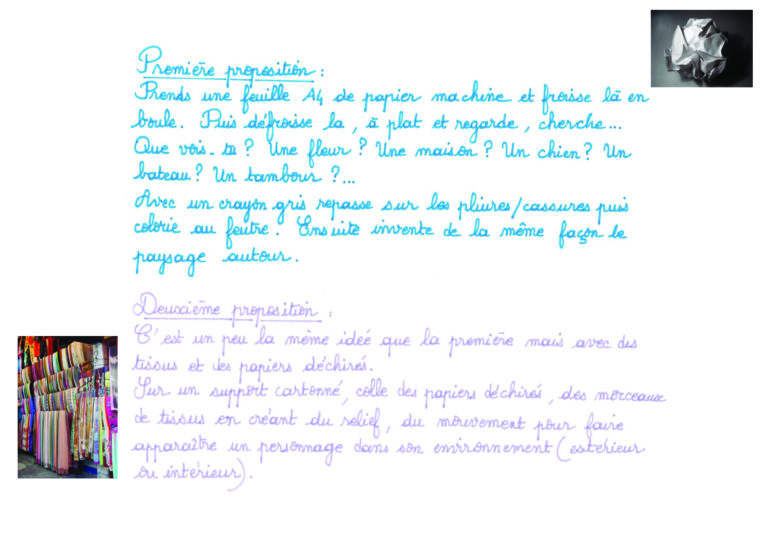 Première proposition :
Prends une feuille A4 de papier machine et froisse là en
boule. Puis défroisse la, à plat et regarde, cherche...
Que vois-tu ? Une fleur ? Une maison ? Un chien ? Un
bateau ? Un tambour ?...
Avec un crayon gris repasse sur les pliures/cassures puis
colorie au feutre. Ensuite invente de la même façon le
paysage autour.
Deuxième proposition :
C'est un peu la même idée que la première mais avec des
tissus et des papiers déchirés.
Sur un support cartonné, colle des papiers déchirés, des morceaux
de tissus en créant du relief, du mouvement pour faire
apparaître un personnage dans son environnement (extérieur
ou intérieur).